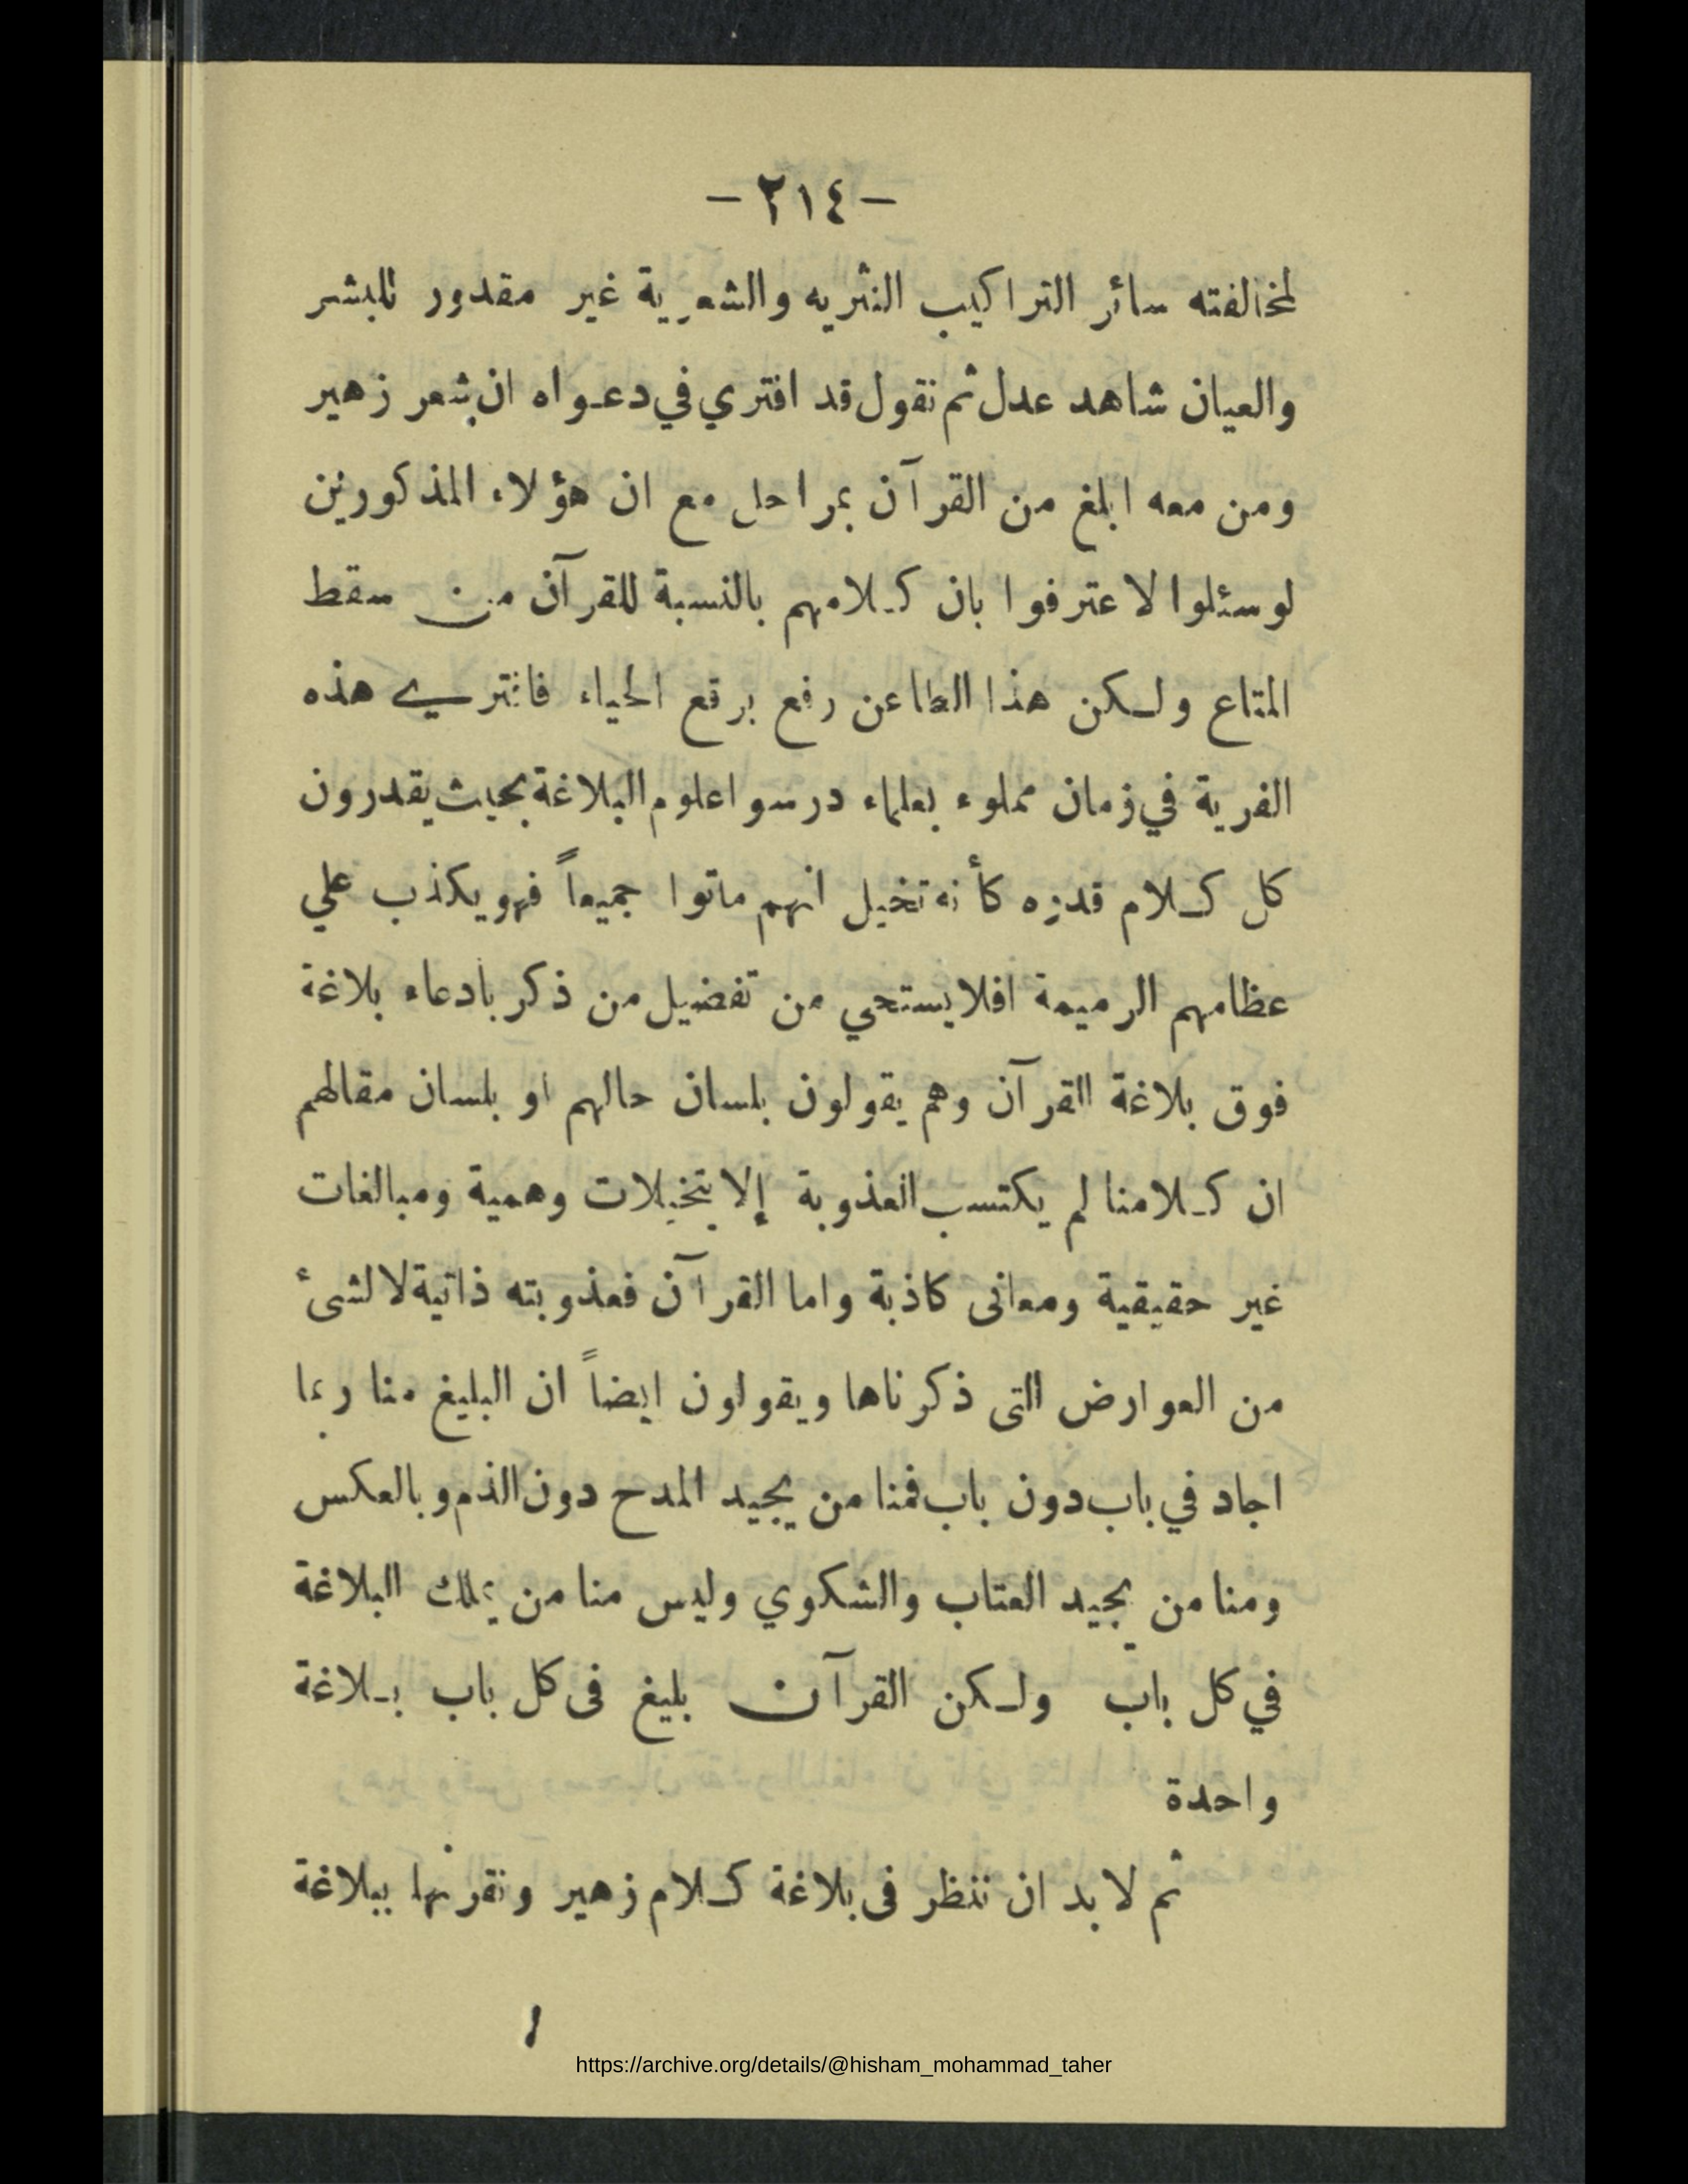 - ٢١٤ -
لمخالفته سائر التراكيب النثريه والشعرية غير مقدور للبشر
والعيان شاهد عدل ثم نقول قد افتري في دعواه ان شعر زهير
ومن معه ابلغ من القرآن بمراحل مع ان هؤلاء المذكورين
لوسئلوا لاعترفوا بان كلامهم بالنسبة للقرآن من سقط
المتاع ولكن هذا الطاعن رفع برقع الحياء فافتري هذه
الفرية في زمان مملوء بعلماء درسوا علوم البلاغة بحيث يقدرون
كل كلام قدره كأنه تخيل انهم ماتوا جميعاً فهو يكذب علي
عظامهم الرميمة افلا يستحي من تفضيل من ذكر بادعاء بلاغة
فوق بلاغة القرآن وهم يقولون بلسان حالهم او بلسان مقالهم
ان كلامنا لم يكتسب العذوبة إلا بتخيلات وهمية ومبالغات
غير حقيقية ومعانى كاذبة واما القرآن فعذوبته ذاتية لا لشىء
من العوارض التى ذكرناها ويقولون ايضاً ان البليغ منا ربما
اجاد في باب دون باب فمنا من يجيد المدح دون الذم وبالعكس
ومنا من يجيد العتاب والشكوي وليس منا من يملك البلاغة
في كل باب ولكن القرآن بليغ فى كل باب بلاغة
واحدة
ثم لا بد ان ننظر فى بلاغة كلام زهير ونقرنها ببلاغة
https://archive.org/details/@hisham_mohammad_taher